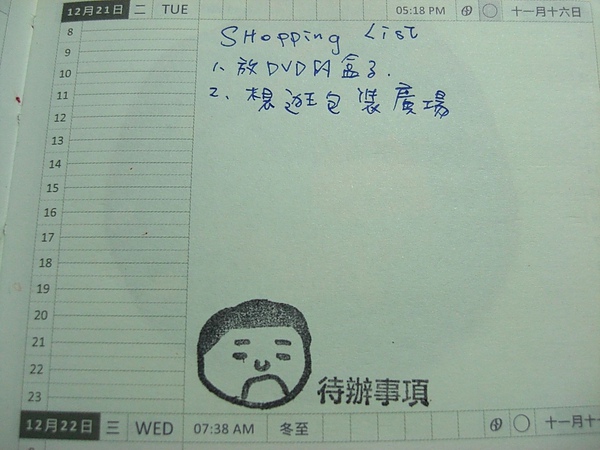 12月21日 二 TUE 05:18 PM 十一月十六日
SHopping List
1、放DVD的盒子.
2、想逛包裝廣場
8
9
10
11
12
13
14
15
16
17
18
19
20
21
22
23
待辦事項
12月22日 三 WED 07:38 AM 冬至 十一月十